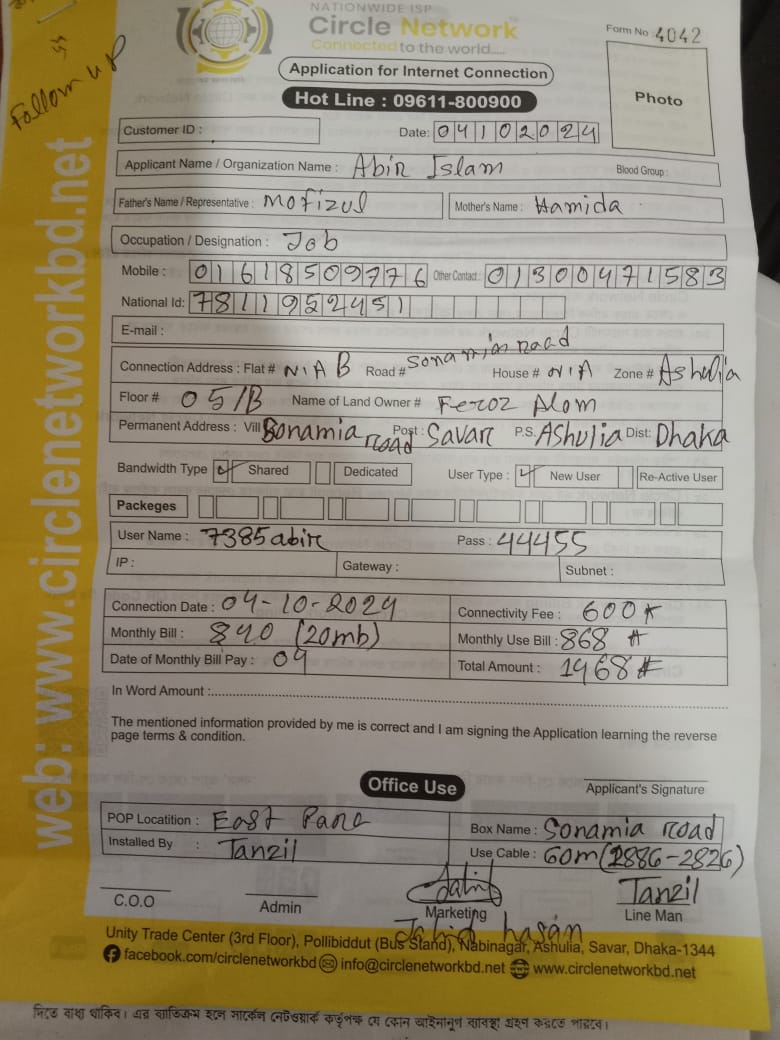 NATIONWIDE ISP
Circle Network
Connected to the world.....
Form No : 4042
Follow up
Application for Internet Connection
Hot Line : 09611-800900
Photo
Customer ID :
Date: 04102024
Applicant Name / Organization Name : Abir Islam Blood Group :
Father's Name / Representative : Mofizul Mother's Name : Hamida
Occupation / Designation : Job
Mobile : 01618509776 Other Contact : 01300471583
National Id: 7811952451
E-mail :
Connection Address : Flat # N/A B Road # Sonamia road House # N/A Zone # Ashulia
Floor # 05/B Name of Land Owner # Feroz Alom
Permanent Address : Vill Sonamia road Post : Savar P.S. Ashulia Dist: Dhaka
Bandwidth Type Shared Dedicated User Type : New User Re-Active User
Packeges
User Name : 7385abir Pass : 44455
IP : Gateway : Subnet :
Connection Date : 04-10-2024 Connectivity Fee : 600
Monthly Bill : 840 (20mb) Monthly Use Bill : 868
Date of Monthly Bill Pay : 04 Total Amount : 1468
In Word Amount :
The mentioned information provided by me is correct and I am signing the Application learning the reverse
page terms & condition.
Office Use
Applicant's Signature
POP Locatition : East Para Box Name : Sonamia road
Installed By : Tanzil Use Cable : 60m (2886-2826)
C.O.O Admin Marketing Tanzil Line Man
Jahid hasan
Unity Trade Center (3rd Floor), Pollibiddut (Bus Stand), Nabinagar, Ashulia, Savar, Dhaka-1344
facebook.com/circlenetworkbd info@circlenetworkbd.net www.circlenetworkbd.net
web: www.circlenetworkbd.net
দিতে বাধ্য থাকিব। এর ব্যতিক্রম হলে সার্কেল নেটওয়ার্ক কর্তৃপক্ষ যে কোন আইনানুগ ব্যবস্থা গ্রহণ করতে পারবে।